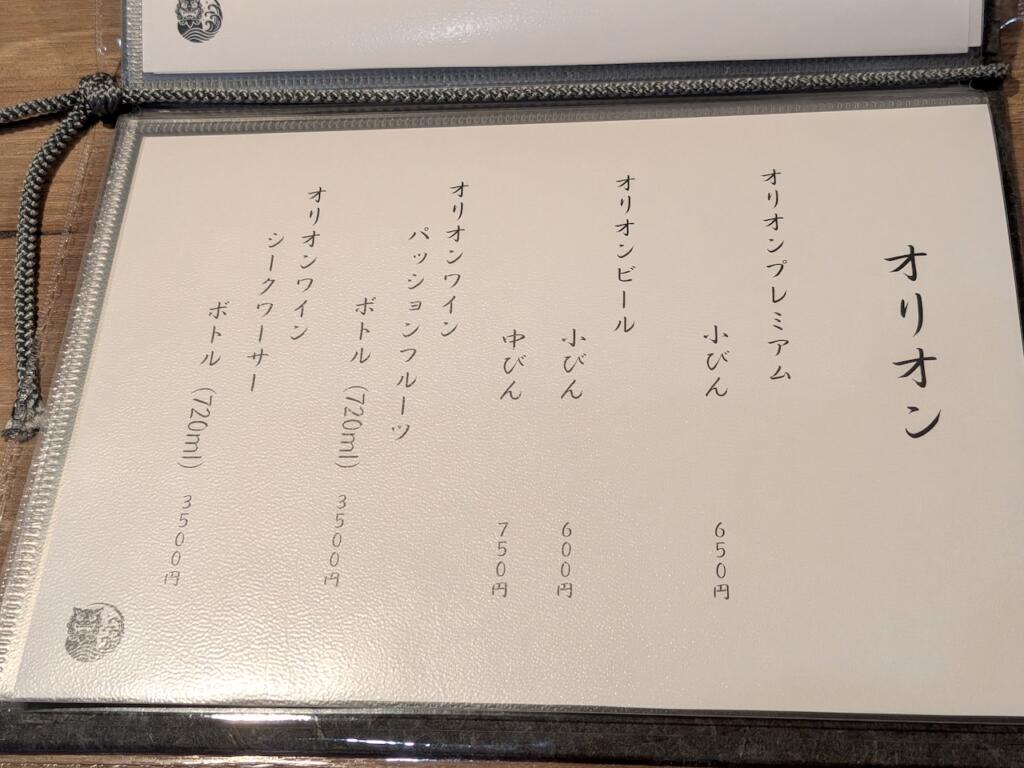 オリオン
オリオンプレミアム
小びん 650円
オリオンビール
小びん 600円
中びん 750円
オリオンワイン
パッションフルーツ
ボトル (720ml) 3500円
オリオンワイン
シークワーサー
ボトル (720ml) 3500円